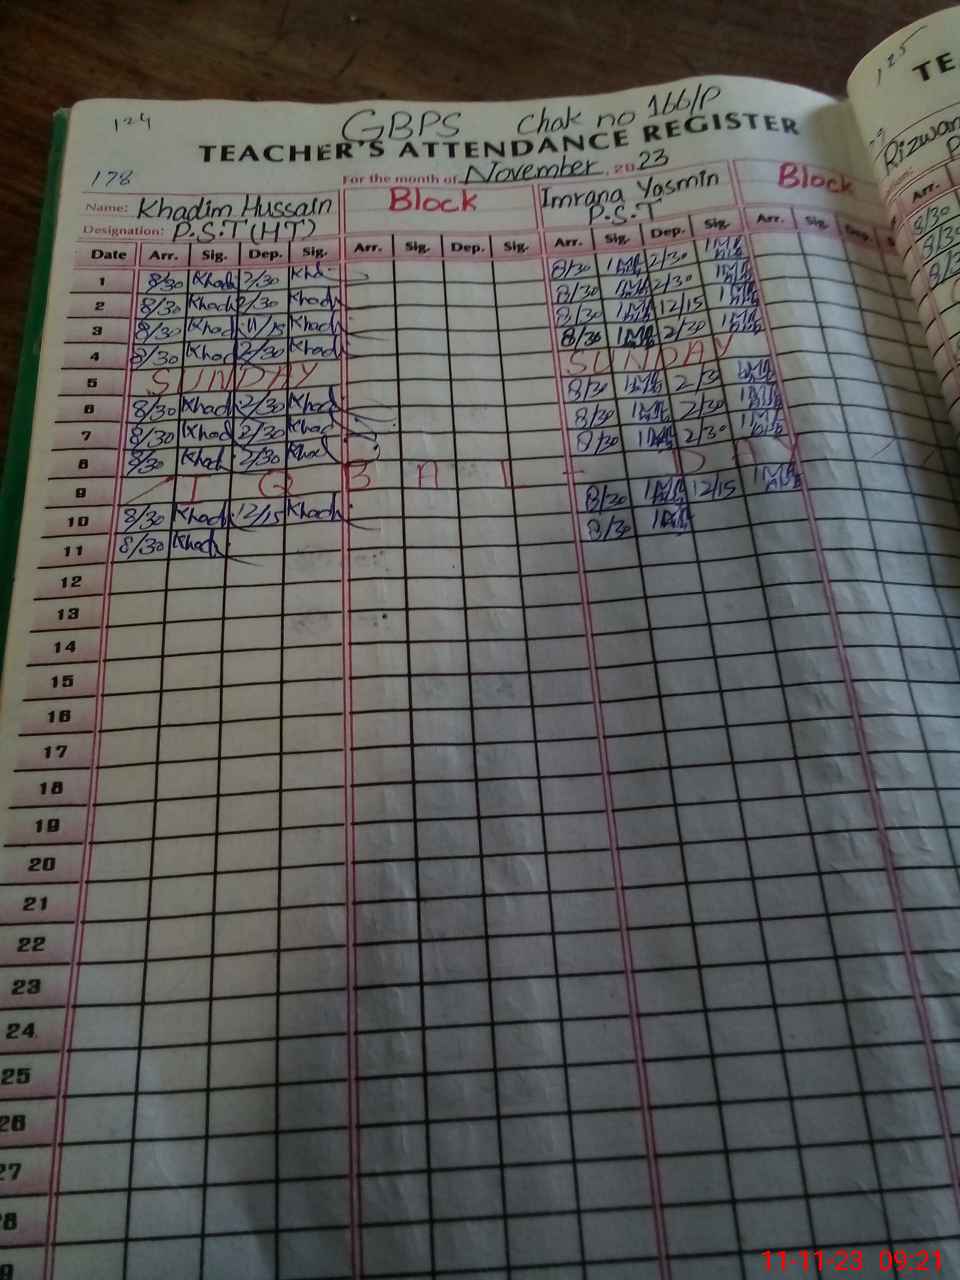 124
125
GBPS Chak no 166/P
TEACHER'S ATTENDANCE REGISTER
TE
178
For the month of November 2023
Name: Khadim Hussain Block Imrana Yasmin Block Rizwan
Designation: P.S.T (HT) P.S.T P
Date Arr. Sig. Dep. Sig. Arr. Sig. Dep. Sig. Arr. Sig. Dep. Sig. Arr. Sig. Dep. S Arr.
1 8/30 Khad 2/30 Kha 8/30 2/30 8/30
2 8/30 Khad 2/30 Khad 8/30 2/30 8/30
3 8/30 Khad 11/15 Khad 8/30 12/15 8/3
4 8/30 Khad 2/30 Khad 8/30 2/30
5 SUNDAY SUNDAY
6 8/30 Khad 2/30 Khad 8/30 2/3
7 8/30 Khad 2/30 Khad 8/30 2/30
8 8/30 Khad 2/30 Khad 8/30 2/30
9 IQBAL DAY
10 8/30 Khad 12/15 Khad 8/30 12/15
11 8/30 Khad 8/30
12
13
14
15
16
17
18
19
20
21
22
23
24
25
26
27
8
9
11-11-23 09:21